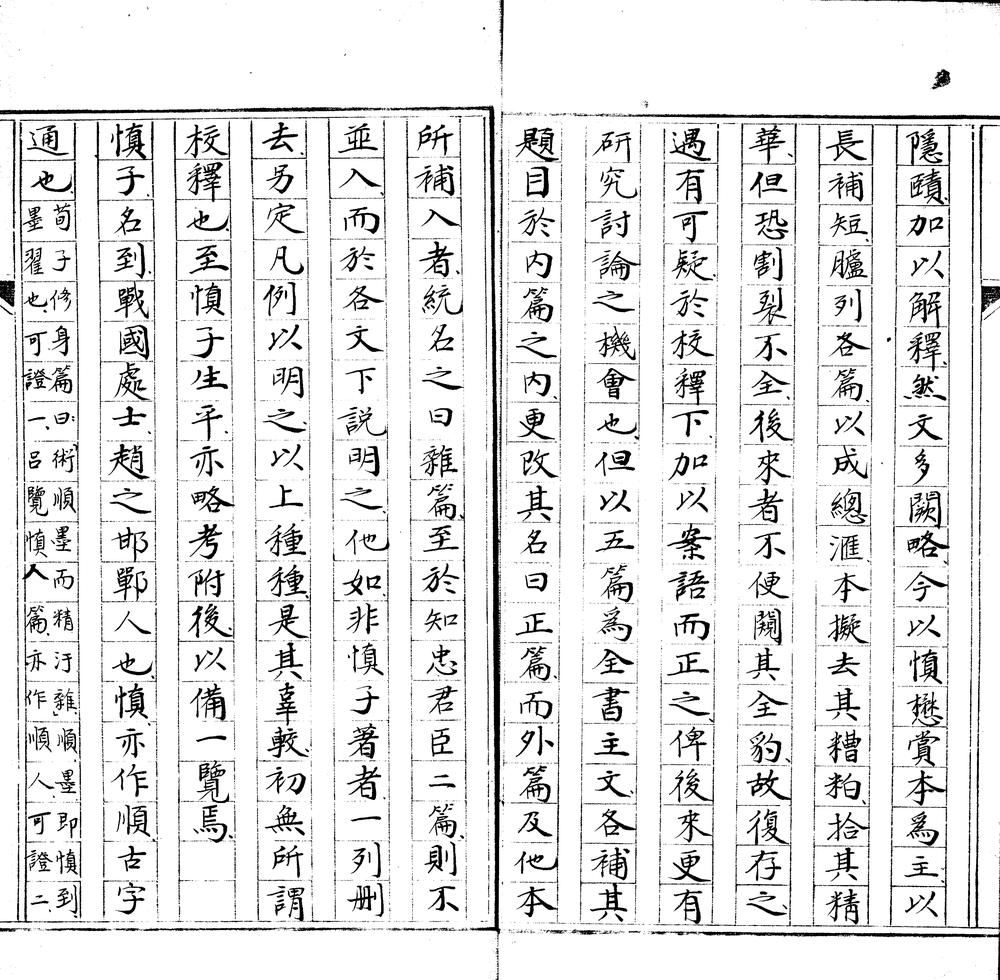 隱賾加以解釋、然文多闕略、今以慎懋賞本爲主、以
長補短、臚列各篇、以成總滙、本擬去其糟粕、拾其精
華、但恐割裂不全、後來者不便閱其全豹、故復存之、
遇有可疑、於校釋下、加以案語而正之、俾後來更有
研究討論之機會也、但以五篇爲全書主文、各補其
題目於內篇之內、更改其名曰正篇、而外篇及他本
所補入者、統名之曰雜篇、至於知忠君臣二篇、則不
並入、而於各文下說明之、他如非慎子著者、一列刪
去、另定凡例以明之、以上種種、是其辜較、初無所謂
校釋也、至慎子生平、亦略考附後、以備一覽焉、
慎子、名到、戰國處士、趙之邯鄲人也、慎、亦作順、古字
通也、荀子修身篇曰、術順墨而精汙雜、順墨即慎到
墨翟也、可證一、呂覽慎人篇、亦作順人、可證二、